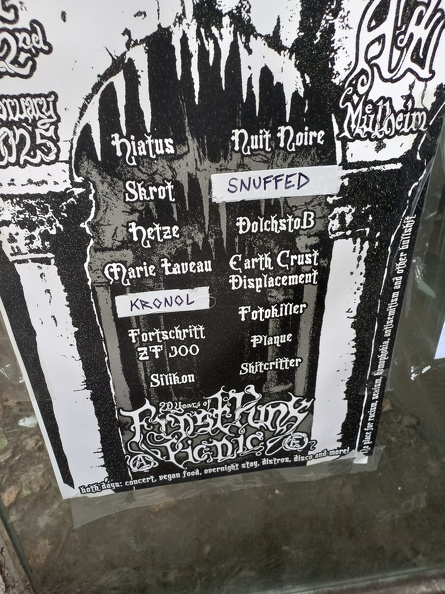 2nd
2025
Mülheim
Hiatus
Nuit Noire
Skrot
SNUFFED
Hetze
Dolchstoß
Marie Laveau
Earth Crust
Displacement
KRONOL
Fotokiller
Fortschritt
ZT 300
Plaque
Silikon
Shitcritter
20 Years of
Frostpunx
Picnic
both days: concert, vegan food, overnight stay, distros, disco and more!
place for racism, sexism, homophobia, antisemitism and other bullshit